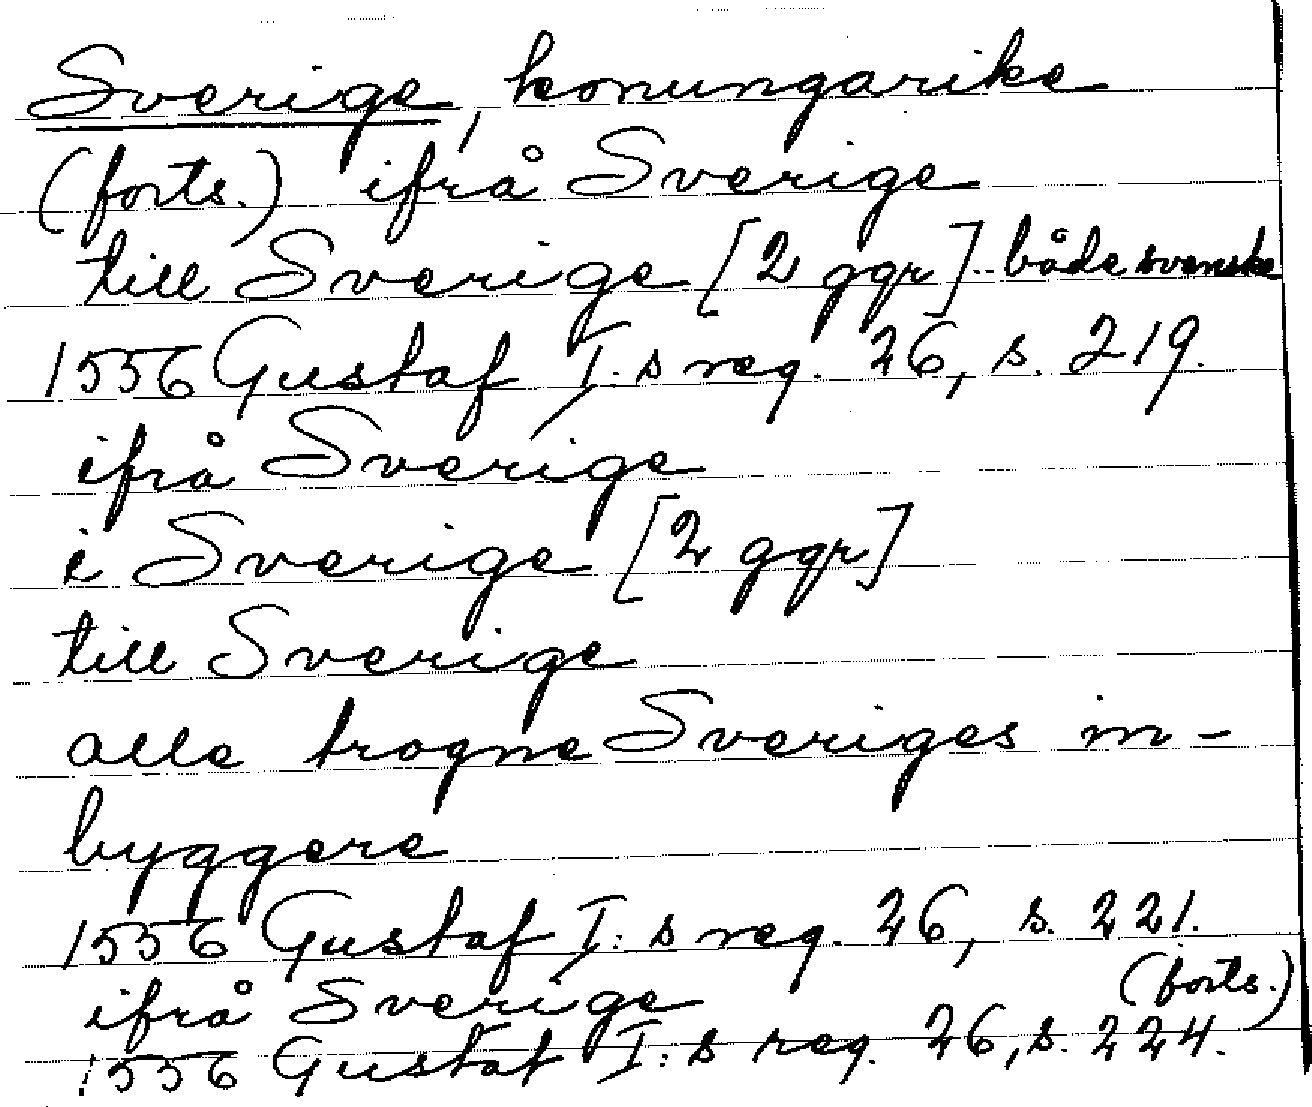 Sverige, konungarike
(forts.) ifrå Sverige
till Sverige [2 ggr] både svenske
1556 Gustaf I:s reg. 26, s. 219.
ifrå Sverige
i Sverige [2 ggr]
till Sverige
alle trogne Sveriges in-
byggere
1556 Gustaf I:s reg. 26, s. 221.
ifrå Sverige (forts.)
1556 Gustaf I:s reg. 26, s. 224.